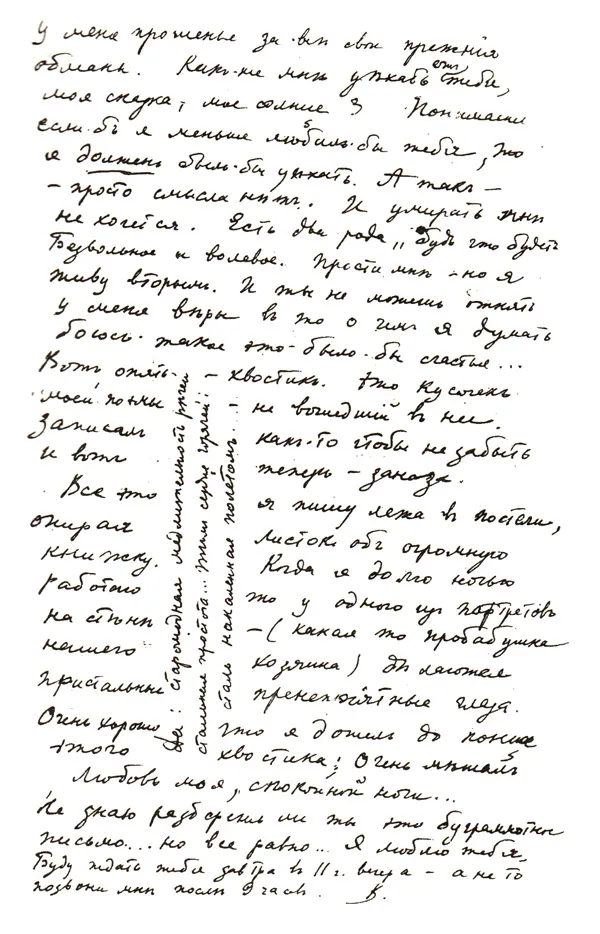 у меня прощенье за всѣ свои прежнія
обманы. Какъ-же мнѣ уѣхать отъ тебя,
моя сказка, мое солнце? Понимаешь
если-бъ я меньше любилъ-бы тебя, то
я долженъ былъ-бы уѣхать. А такъ —
— просто смысла нѣтъ. И умирать мнѣ
не хочется. Есть два рода „будь что будетъ
Безвольное и волевое. Прости мнѣ — но я
живу вторымъ. И ты не можешь отнять
у меня вѣры въ то о чемъ я думать
боюсь — такое это-было-бы счастье...
Вотъ опять — хвостикъ. Это кусочекъ
моей поэмы не вошедшій въ нее.
Записалъ какъ-то чтобы не забыть
и вотъ теперь — заноза.
Все это я пишу лежа въ постели,
опирая листокъ объ огромную
книжку. Когда я долго ночью
работаю то у одного изъ портретовъ
на стѣнѣ — (какая то пробабушка
нашего хозяина) дѣлаются
пристальные пренепріятные глаза.
Очень хорошо что я дошелъ до конца
этого хвостика; Очень мѣшалъ
Да: старомодная медлительность рѣчей
стальная простота... Тѣмъ сердце горячѣй:
сталь накаленная полетомъ...
Любовь моя, спокойной ночи...
Не знаю разберешь ли ты это безграмотное
письмо... но все равно... Я люблю тебя,
Буду ждать тебя завтра въ 11 г. вечера — а не то
позвони мнѣ послѣ 9 часовъ. В.